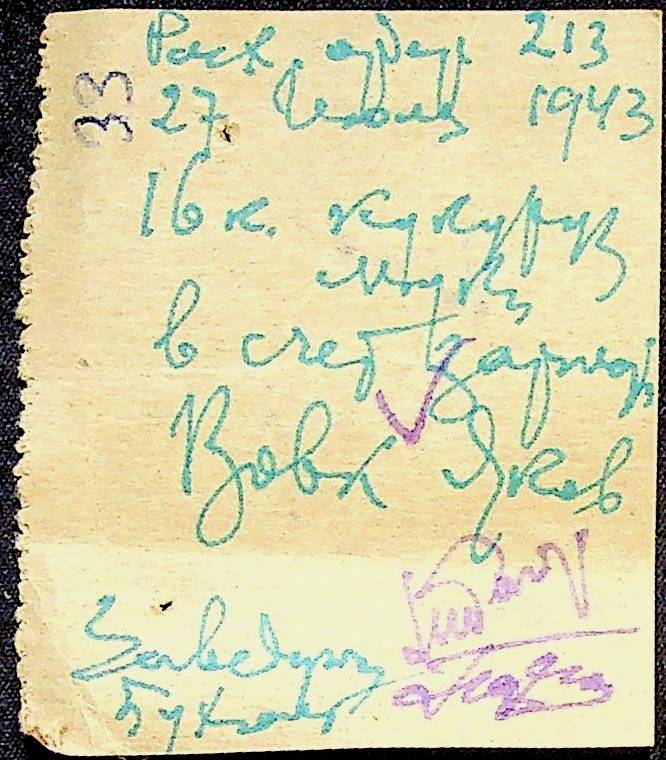 33
Расх ордер 213
27 Июля 1943
16 к. кукуруз
муки
в счет зарплат
Вовк Яков
Заведующ
Бухгалт